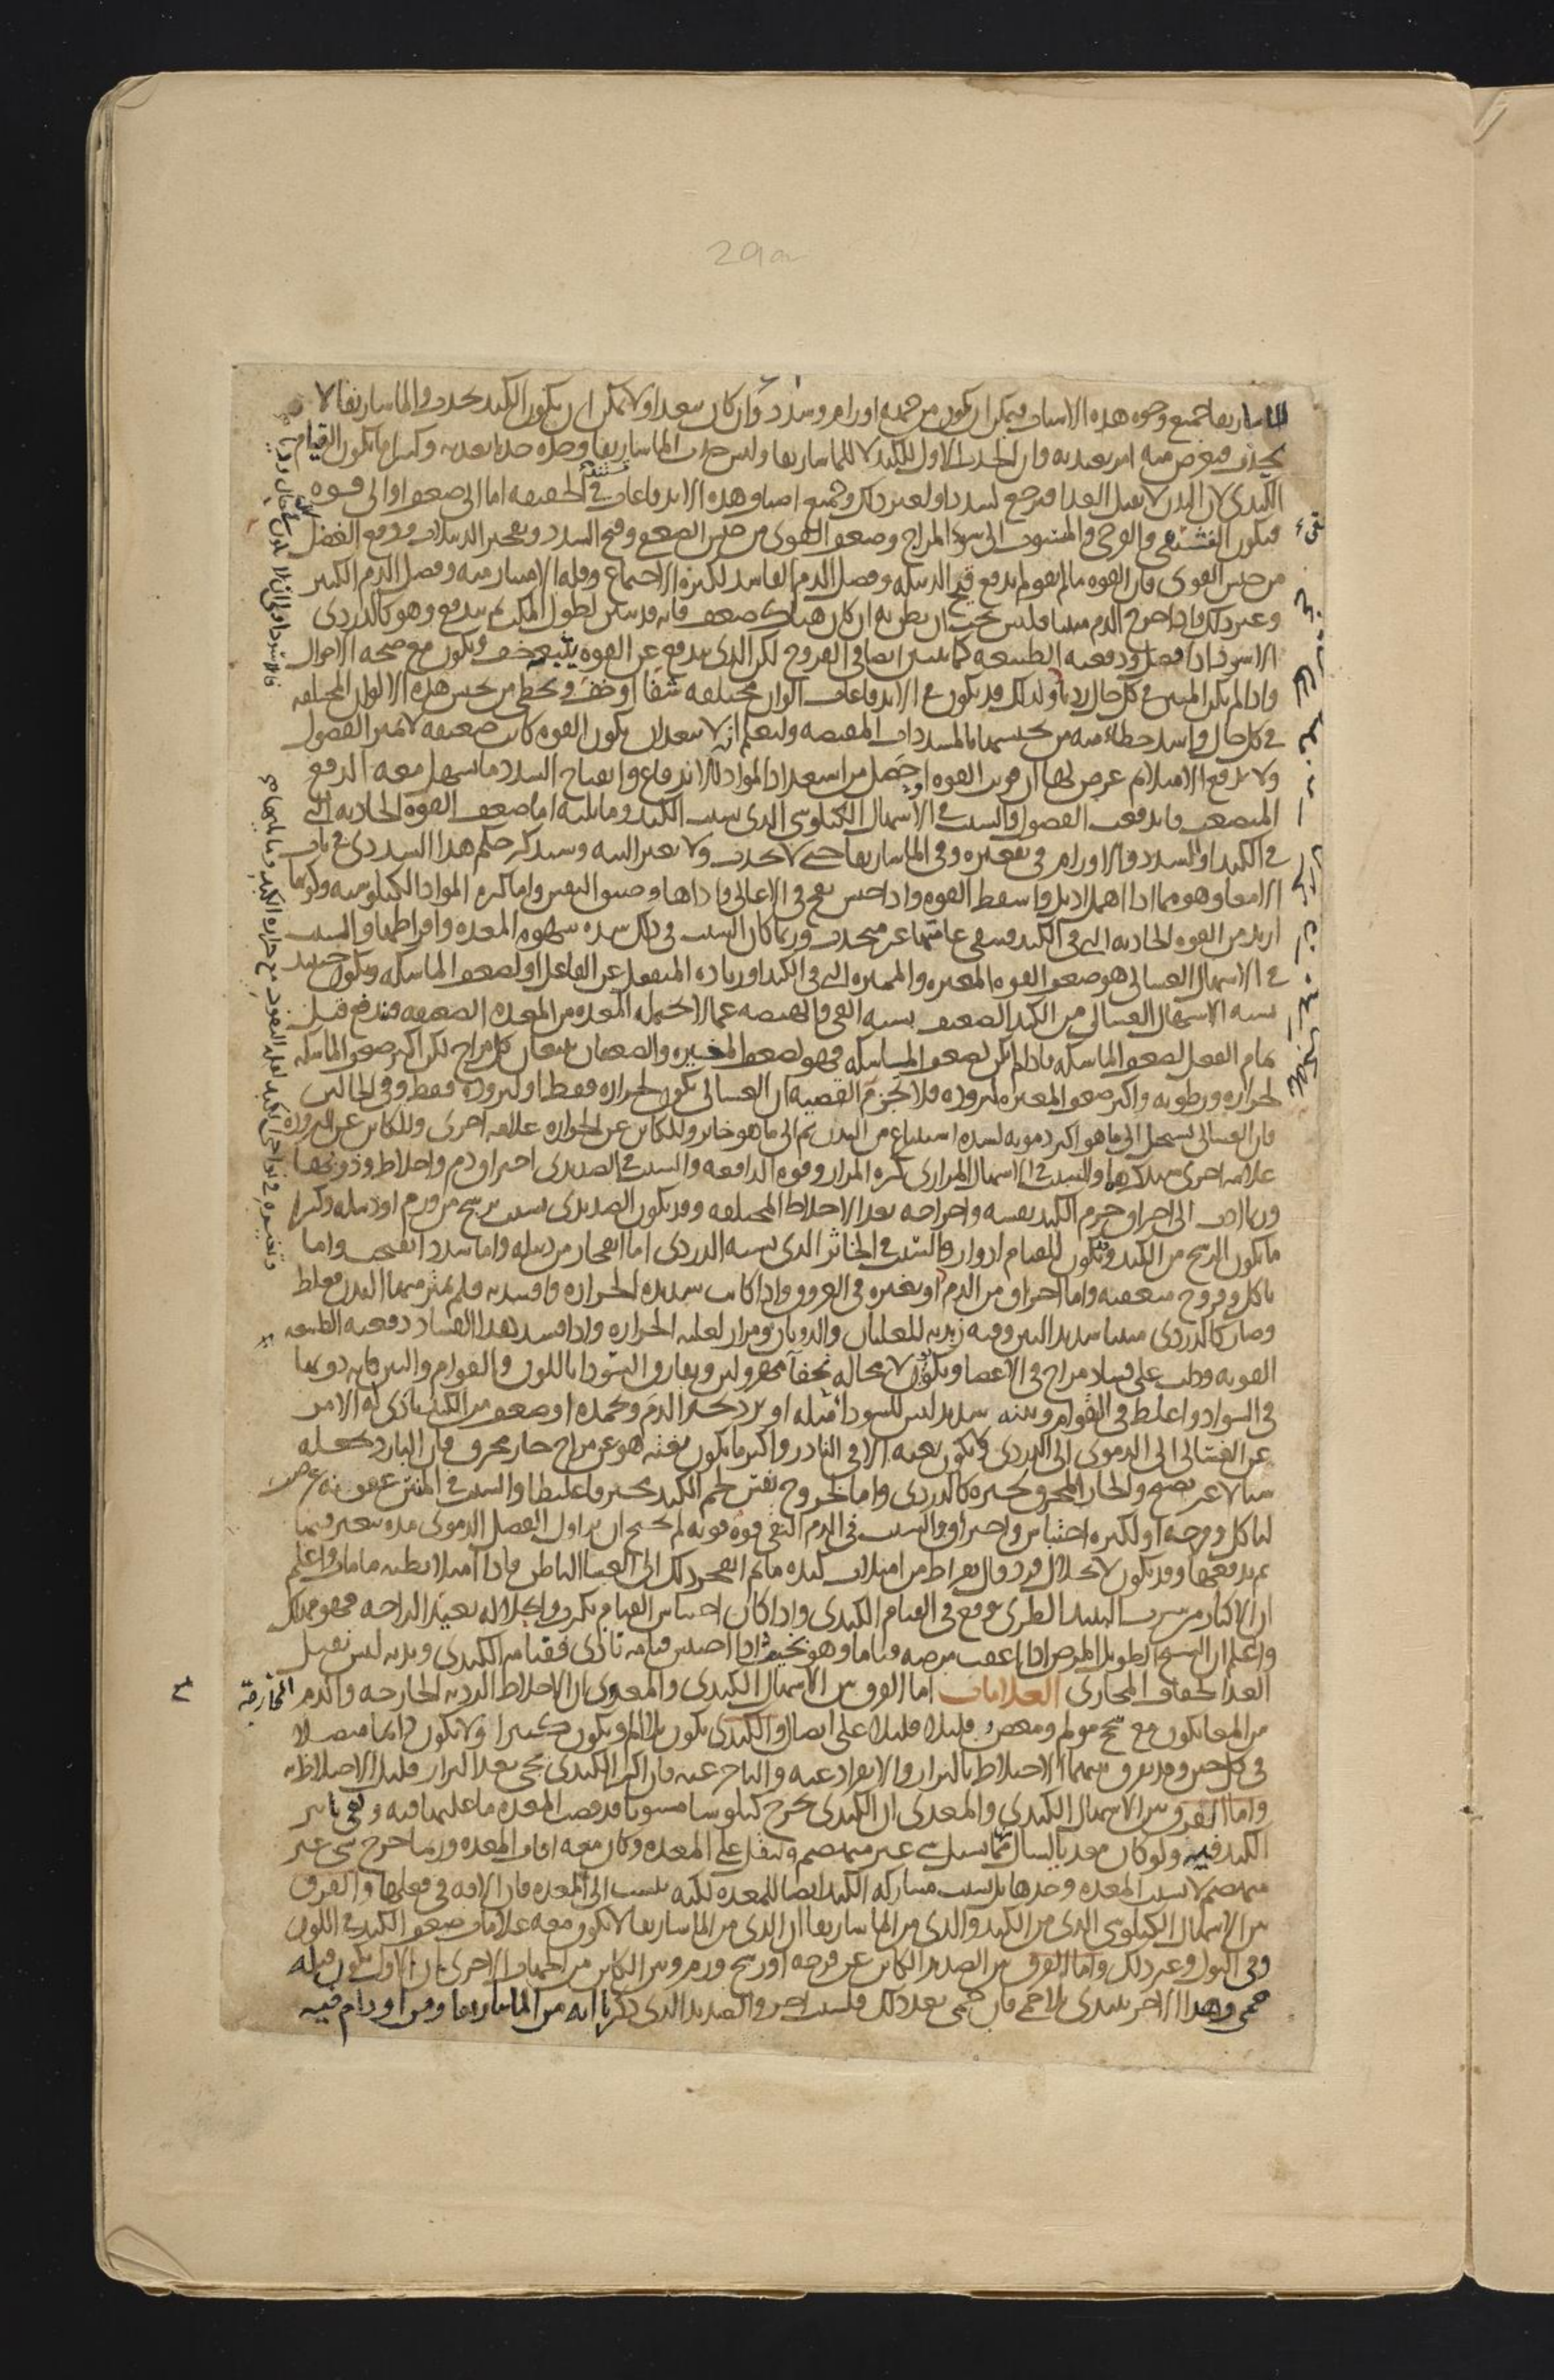 29a
الماساريقا جميع وجوه هذه الاسباب فيمكن ان يكون من جهة اورام وسدد وان كان بعيدا ولا يمكن ان يكون الكبد يجذب والماساريقا لا
يجذب فيعرض منه امر يعتد به فان الجذب الاول للكبد لا للماساريقا وليس جذب الماساريقا وحده جذبا يعتد به وكثيرا ما يكون القيام
الكبدي لان البدن لا يقبل الغذا فيرجع لسدد او لغير ذلك وجميع اصناف هذه الاندفاعات تستند في الحقيقة اما الى ضعف او الى قوة
فيكون الفتقي والقرحي والمنسوب الى سوء المزاج وضعف القوى من جنس الضعف وفتح السدد وتفجير الدبيلات ودفع الفضل
من جنس القوى فان القوة ما لم تقو لم تدفع قيح الدبيلة وفضل الدم الفاسد لكثرة الاجتماع وقلة الامتيار منه وفضل الدم الكثير
وغير ذلك فاذا خرج الدم منتنا فليس يجب ان يظن به ان كان هناك ضعف فانه قد ينتن لطول المكث ثم يندفع وهو كالدردي
الاسود اذا فضل ودفعته الطبيعة كما ينتن ايضا في القروح لكن الذي يندفع عن القوة يتبعه خف ويكون مع صحة الاحوال
واذا لم يكن المنتن في كل حال رديا ولذلك قد يكون في الاندفاعات الوان مختلفة شفا وخف ويخطي من يحبس هذه الالوان المختلفة
في كل حال واشد خطاء منه من يحبسها بالمسددات المقبضة وليعلم انه لا يبعد ان يكون القوة كانت ضعيفة لا تميز الفضول
ولا تدفع الامتلا ثم عرض لها ان قويت القوة او حصل من استعداد المواد للاندفاع وانفتاح السدد ما سهل معه الدفع
المتصعب فاندفعت الفضول والسبب في الاسهال الكيلوسي الذي بسبب الكبد وما يليه اما ضعف القوة الجاذبة التي
في الكبد او السدد والاورام في تقعيره وفي الماساريقا حتى لا تجذب ولا تغير البتة وسنذكر حكم هذا السددي في باب
الامعا وهو مما اذا اهمل اذبل واسقط القوة واذا احتبس نفخ في الاعالي واذاها وضيق النفس واما كثرة المواد الكيلوسية وكونها
ازيد من القوة الجاذبة التي في الكبد فتبقى عامتها غير منجذب وربما كان السبب في ذلك شدة شهوة المعدة وافراطها والسبب
في الاسهال الغسالي هو ضعف القوة المغيرة والمميزة التي في الكبد او زيادة المنفعل عن الفاعل او لضعف الماسكة ويكون حينئذ
نسبة الاسهال الغسالي من الكبد الضعيف نسبة القي والهيضة عما لا تحتمله المعدة من المعدة الضعيفة فتندفع قبل
تمام الفعل لضعف الماسكة فاذا لم يكن لضعف الماسكة فهو لضعف المغيرة والضعفان يتبعان كل مزاج لكن اكثر ضعف الماسكة
لحرارة ورطوبة واكثر ضعف المغيرة لبرودة فلا تجزم القضية ان الغسالي يكون لحرارة فقط او لبرودة فقط وفي الحالين
فان الغسالي يستحيل الى ما هو اكثر دموية لشدة استتباع من البدن ثم الى ما هو خاثر وللكاين عن الحرارة علامة اخرى وللكاين عن البرودة
علامة اخرى سنذكرها والسبب في الاسهال المراري كثرة المرار وقوة الدافعة والسبب في الصديدي احتراق دم واخلاط وذوبها
وربما ادت الى احراق جرم الكبد نفسه واخراجه بعد الاخلاط المختلفة وقد يكون الصديدي بسبب ترشح من ورم او دبيلة وكثيرا
ما يكون الترشح من الكبد ويكون للقيام ادوار والسبب في الخاثر الذي يشبه الدردي اما انفجار من دبيلة واما سدد انفتحت واما
تاكل وقروح متعفنة واما احتراق من الدم او تغيره في العروق واذا كانت شديدة الحرارة وافسدته فلم يمتز منها البدن فغلظ
وصار كالدردي منتنا شديد النتن وفيه زبدية للغليان والذوبان ومرار لغلبة الحرارة واذا فسد هذا الفساد دفعته الطبيعة
القوية ودلت على فساد مزاج في الاعضا ويكون لا محالة نحفا مهزولين ويفارق السودا باللون والقوام والنتن فانه دونها
في السواد واغلظ في القوام ونتنه شديد ليس للسودا مثله او برد يخثر الدم ويجمده او ضعف من الكبد يتادى به الامر
عن الغسالي الى الدموي الى الدردي ولا يكون بغتة الا في النادر واكثر ما يكون بغتة هو عن مزاج حار محرق فان البارد يجعله
سيالا غير نضيج والحار المحرق يخثره كالدردي واما لخروج نفس لحم الكبد محترقا غليظا والسبب في المنتن عفونة عرضت
لتاكل وقرحة او لكثرة احتباس واحتراق والسبب في الدم النقي قوة قوية لم تحتج ان تزاول الفضل الدموي مدة يتغير فيها
ثم تدفعها وقد يكون لانحلال فرد وقال بقراط من امتلات كبده ماء ثم انفجر ذلك الى الغشا الباطن فاذا امتلا بطنه ماء مات واعلم
ان الاكثار من شرب النبيذ الطري يوقع في القيام الكبدي واذا كان احتباس القيام يكرب وانحلاله يعيد الراحة فهو مهلك
واعلم ان الشيخ الطويل المرض اذا اعقب مرضه قياما وهو نحيف اذا احتبس قيامه تاذى فقيامه كبدي وبدنه ليس يقبل
الغذا لجفاف المجاري العلامات اما الفرق بين الاسهال الكبدي والمعوي ان الاخلاط الردية الخارجة والدم الخارجة
من المعا يكون مع سحج مولم ومغص قليلا قليلا على اتصال والكبدي يكون بلا الم ويكون كثيرا ولا يكون دايما متصلا
في كل حين وقد يفرق بينهما الاختلاط بالبراز والانفراد عنه والتاخر عنه فان اكثر الكبدي يجي بعد البراز قليل الاختلاط به
واما الفرق بين الاسهال الكبدي والمعدي ان الكبدي يخرج كيلوسا مستويا قد قضت المعدة ما عليها فيه وبقي تاثير
الكبد فيه ولو كان معديا لسال مما يسيل شي غير منهضم ولثقل على المعدة وكان معه افات المعدة وربما خرج شي غير
منهضم لا بسبب المعدة وحدها بل بسبب مشاركة الكبد ايضا للمعدة لكنه ينسب الى المعدة فان الافة في فعلها والفرق
بين الاسهال الكيلوسي الذي من الكبد والذي من الماساريقا ان الذي من الماساريقا لا يكون معه علامات ضعف الكبد في اللون
وفي البول وغير ذلك واما الفرق بين الصديد الكاين عن قرحة او رشح ورم وبين الكاين من الجهات الاخرى ان الاول يكون قبله
حمى وهذا الاخر يبتدي بلا حمى فان حمى بعد ذلك فلسبب اخر والصديد الذي ذكرنا انه من الماساريقا ومن اورام فيه